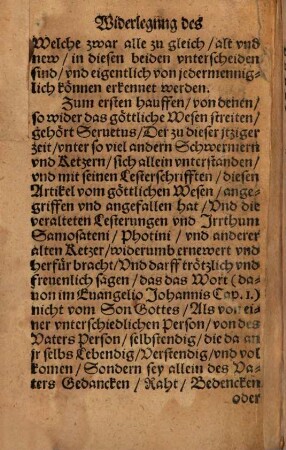 Widerlegung des
Welche zwar alle zu gleich/alt vnd
new/in diesen beiden vnterscheiden
sind/vnd eigentlich von jedermennig-
lich können erkennet werden.
Zum ersten hauffen/von denen/
so wider das göttliche Wesen streiten/
gehört Seruetus/Der zu dieser jtziger
zeit/vnter so viel andern Schwermern
vnd Ketzern/sich allein vnterstanden/
vnd mit seinen Lesterschrifften/diesen
Artikel vom göttlichen Wesen/ange-
griffen vnd angefallen hat/Vnd die
veralteten Lesterungen vnd Irrthum
Samosateni/Photini/vnd anderer
alten Ketzer/widerumb ernewert vnd
herfür bracht/Vnd darff trötzlich vnd
freuenlich sagen/das das Wort (da-
uon im Euangelio Johannis Cap. 1.)
nicht vom Son Gottes/Als von ei-
ner vnterschiedlichen Person/von des
Vaters Person/selbstendig/die da an
jr selbs Lebendig/Verstendig/vnd vol
komen/Sondern sey allein des Va-
ters Gedancken/Raht/Bedencken
oder